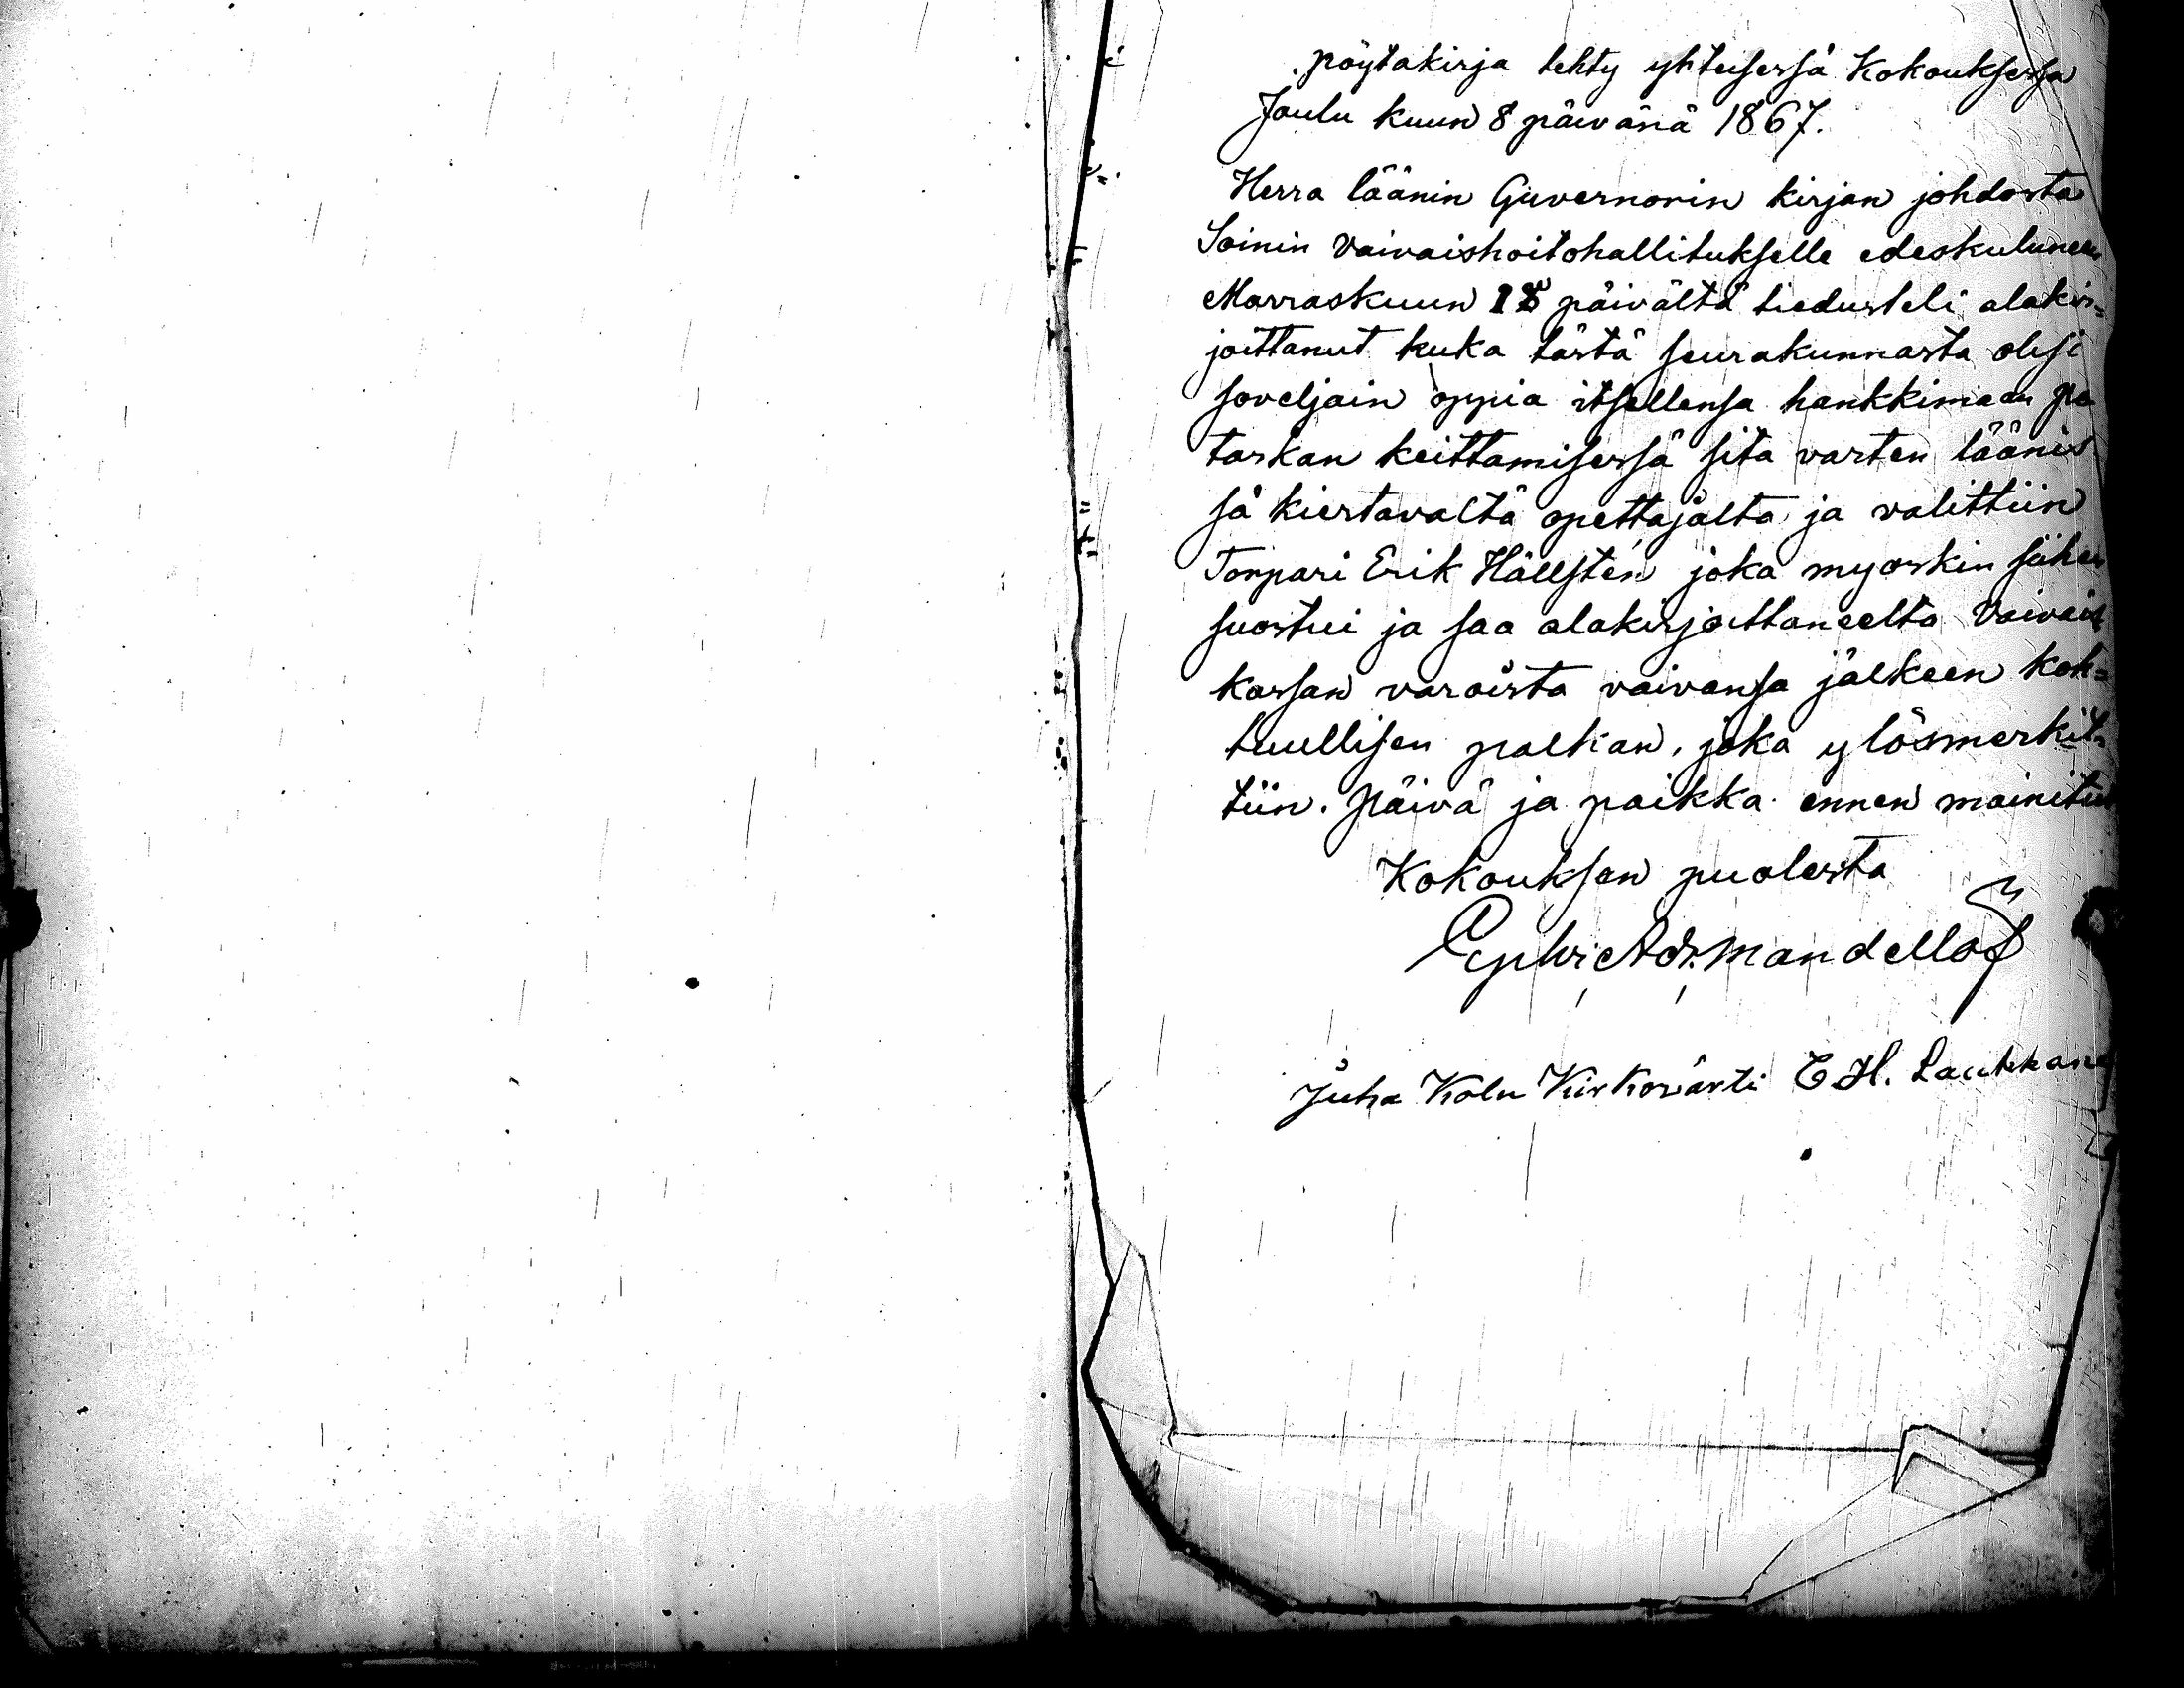 pöytakirja tehty yhteisessä Kokouksessa
Joulu kuun 8 päivänä 1867.
Herra läänin Guvernorin kirjan johdosta
Soinin Vaivaishoitohallitukselle edeskuluneen
Marraskuun päivältä tiedusteli alakir=
joittanut kuka tästä seurakunnasta olisi
soveljain oppia itsellensa hankkimaan pe
taskan keittamisessä sita varten läänis
sä kiertavaltä opettajalta ja valittiin
Torpari Erik Hällstén joka myoskin siihen
suostui ja saa alakirjoittaneelta Vaivais
kassan varoista vaivansa jälkeen koh=
tuullisen palkan, joka ylösmerkit=
tiin. Päivä ja paikka ennen mainitut
Kokouksen puolesta
Mandellöf
Juha Kolu Kirkovärti E H. Laukkane